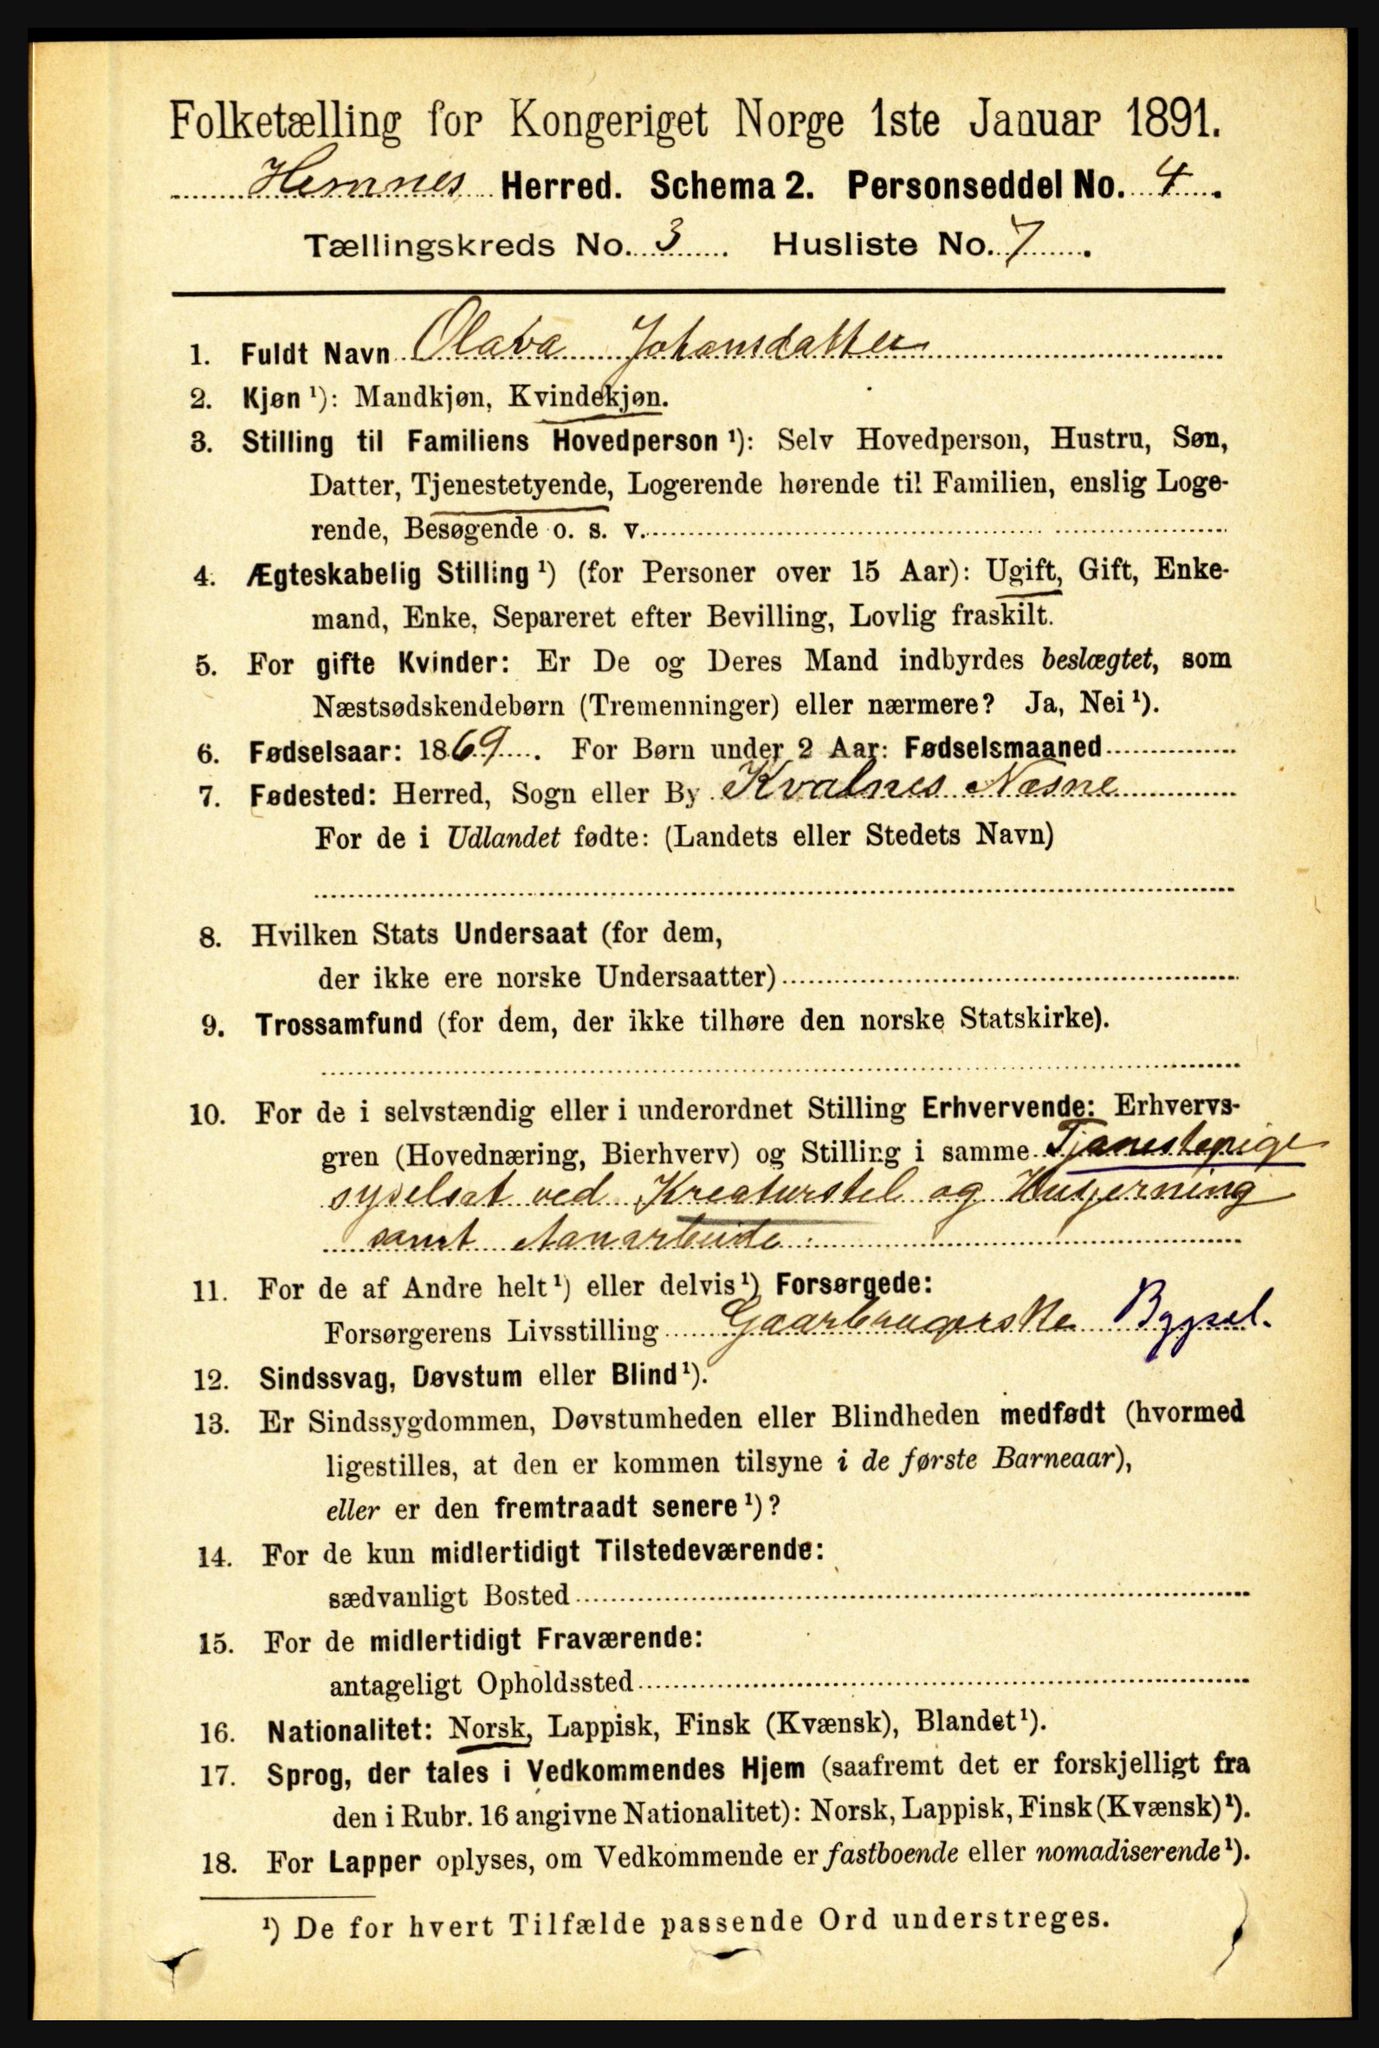 Folketælling for Kongeriget Norge 1ste Januar 1891.
Hemnes Herred. Schema 2. Personseddel No. 4.
Tællingskreds No. 3. Husliste No. 7.
1. Fuldt Navn Olava Johansdatter
2. Kjøn ¹): Mandkjøn, Kvindekjøn.
3. Stilling til Familiens Hovedperson ¹): Selv Hovedperson, Hustru, Søn,
Datter, Tjenestetyende, Logerende hørende til Familien, enslig Loge-
rende, Besøgende o. s. v.
4. Ægteskabelig Stilling ¹) (for Personer over 15 Aar): Ugift, Gift, Enke-
mand, Enke, Separeret efter Bevilling, Lovlig fraskilt.
5. For gifte Kvinder: Er De og Deres Mand indbyrdes beslægtet, som
Næstsødskendebørn (Tremenninger) eller nærmere? Ja, Nei ¹).
6. Fødselsaar: 1869. For Børn under 2 Aar: Fødselsmaaned
7. Fødested: Herred, Sogn eller By Kvalnes Næsne
For de i Udlandet fødte: (Landets eller Stedets Navn)
8. Hvilken Stats Undersaat (for dem,
der ikke ere norske Undersaatter)
9. Trossamfund (for dem, der ikke tilhøre den norske Statskirke).
10. For de i selvstændig eller i underordnet Stilling Erhvervende: Erhvervs-
gren (Hovednæring, Bierhverv) og Stilling i samme Tjenestepige
syselsat ved Kreaturstel og Husgerning
samt Aanarbeide.
11. For de af Andre helt ¹) eller delvis ¹) Forsørgede:
Forsørgerens Livsstilling Gaarbrugerske Bygsel.
12. Sindssvag, Døvstum eller Blind ¹).
13. Er Sindssygdommen, Døvstumheden eller Blindheden medfødt (hvormed
ligestilles, at den er kommen tilsyne i de første Barneaar),
eller er den fremtraadt senere ¹)?
14. For de kun midlertidigt Tilstedeværende:
sædvanligt Bosted
15. For de midlertidigt Fraværende:
antageligt Opholdssted
16. Nationalitet: Norsk, Lappisk, Finsk (Kvænsk), Blandet ¹).
17. Sprog, der tales i Vedkommendes Hjem (saafremt det er forskjelligt fra
den i Rubr. 16 angivne Nationalitet): Norsk, Lappisk, Finsk (Kvænsk) ¹).
18. For Lapper oplyses, om Vedkommende er fastboende eller nomadiserende ¹).
¹) De for hvert Tilfælde passende Ord understreges.